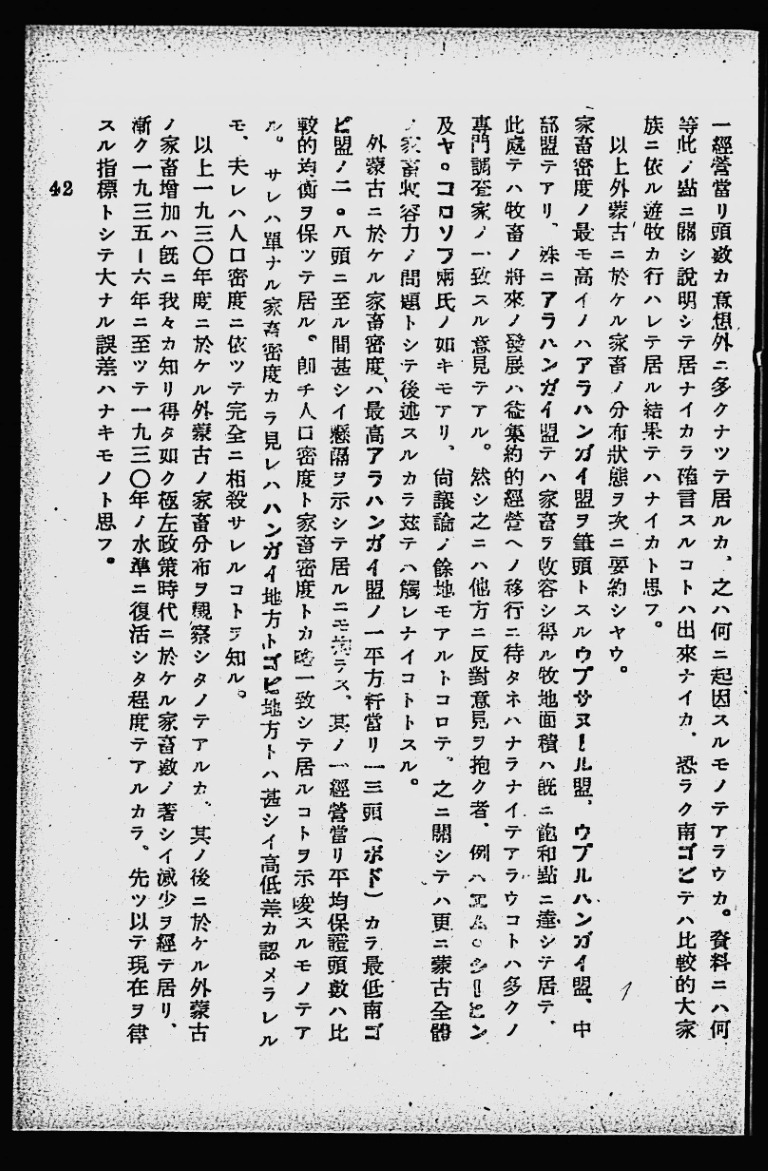 一經營當リ頭數カ意想外ニ多クナツテ居ルカ、之ハ何ニ起因スルモノテアラウカ。資料ニハ何
等此ノ點ニ關シ說明シテ居ナイカラ確言スルコトハ出來ナイカ、恐ラク南ゴビテハ比較的大家
族ニ依ル遊牧カ行ハレテ居ル結果テハナイカト思フ。
以上外蒙古ニ於ケル家畜ノ分布狀態ヲ次ニ要約シヤウ。
家畜密度ノ最モ高イノハアラハンガイ盟ヲ筆頭トスルウブサヌール盟、ウブルハンガイ盟、中
部盟テアリ、殊ニアラハンガイ盟テハ家畜ヲ收容シ得ル牧地面積ハ旣ニ飽和點ニ達シテ居テ、
此處テハ牧畜ノ將來ノ發展ハ從集約的經營ヘノ移行ニ待タネハナラナイテアラウコトハ多クノ
專門調査家ノ一致スル意見テアル。然シ之ニハ他方ニ反對意見ヲ抱ク者、例ハエム。シーヒン
及ヤ。コロソフ兩氏ノ如キモアリ、尙議論ノ餘地モアルトコロテ、之ニ關シテハ更ニ蒙古全體
ノ家畜收容力ノ問題トシテ後述スルカラ玆テハ觸レナイコトトスル。
外蒙古ニ於ケル家畜密度ハ最高アラハンガイ盟ノ一平方粁當リ一三頭（ボド）カラ最低南ゴ
ビ盟ノ二。八頭ニ至ル間甚シイ懸隔ヲ示シテ居ルニモ拘ラス、其ノ一經營當リ平均保證頭數ハ比
較的均衡ヲ保ツテ居ル。卽チ人口密度ト家畜密度トカ略一致シテ居ルコトヲ示唆スルモノテア
ル。サレハ單ナル家畜密度カラ見レハハンガイ地方トゴビ地方トハ甚シイ高低差カ認メラレル
モ、夫レハ人口密度ニ依ツテ完全ニ相殺サレルコトヲ知ル。
以上一九三〇年度ニ於ケル外蒙古ノ家畜分布ヲ觀察シタノテアルカ、其ノ後ニ於ケル外蒙古
ノ家畜增加ハ旣ニ我々カ知リ得タ如ク極左政策時代ニ於ケル家畜數ノ著シイ減少ヲ經テ居リ、
漸ク一九三五ー六年ニ至ツテ一九三〇年ノ水準ニ復活シタ程度テアルカラ、先ツ以テ現在ヲ律
スル指標トシテ大ナル誤差ハナキモノト思フ。
42